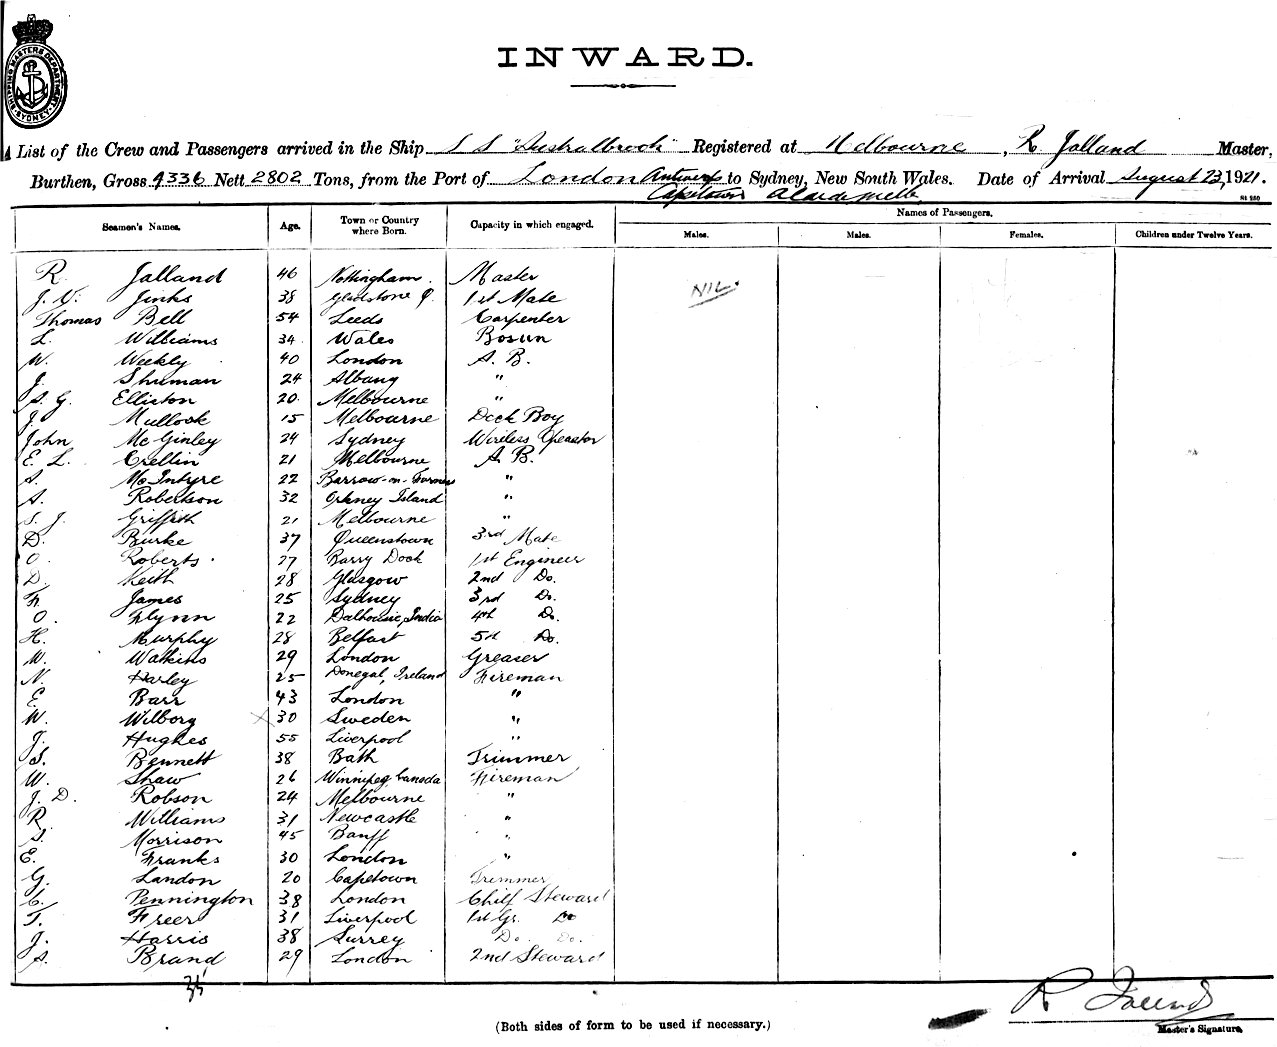 SHIPPING MASTERS DEPARTMENT SYDNEY
INWARD.
List of the Crew and Passengers arrived in the Ship S S "Australbrook" Registered at Melbourne, R. Jalland Master,
Burthen, Gross 4336 Nett 2802 Tons, from the Port of London Antwerp to Sydney, New South Wales. Date of Arrival August 23, 1921.
Capetown
Seamen's Names. Age. Town or Country where Born. Capacity in which engaged. Names of Passengers.
Males. Males. Females. Children under Twelve Years.
R. Jalland 46 Nottingham. Master NIL.
J. V. Jinks 38 Gladstone Q. 1st Mate
Thomas Bell 54 Leeds Carpenter
L. Williams 34 Wales Bosun
W. Weekly 40 London A. B.
J. Shuman 24 Albany "
S. G. Elliston 20 Melbourne "
J. Mullook 15 Melbourne Deck Boy
John McGinley 24 Sydney Wireless Operator
E. L. Crellin 21 Melbourne A. B.
A. McIntyre 22 Barrow-in-Furness "
A. Robertson 32 Orkney Island "
S. J. Griffith 21 Melbourne "
D. Burke 37 Queenstown 3rd Mate
O. Roberts 27 Barry Dock 1st Engineer
D. Keith 28 Glasgow 2nd Do.
F. James 25 Sydney 3rd Do.
O. Flynn 22 Dalhousie, India 4th Do.
H. Murphy 28 Belfast 5th Do.
W. Watkins 29 London Greaser
N. Harley 25 Donegal, Ireland Fireman
E. Barr 43 London "
W. Wilborg X 30 Sweden "
J. Hughes 55 Liverpool "
S. Bennett 38 Bath Trimmer
W. Shaw 26 Winnipeg, Canada Fireman
J. D. Robson 24 Melbourne "
R. Williams 31 Newcastle "
S. Morrison 45 Banff "
E. Franks 30 London "
G. Landon 20 Capetown Trimmer
C. Pennington 38 London Chief Steward
T. Freer 31 Liverpool 1st Gr. Do
J. Harris 38 Surrey Do. Do.
S. Brand 29 London 2nd Steward
35
R Jalland
Master's Signature.
(Both sides of form to be used if necessary.)